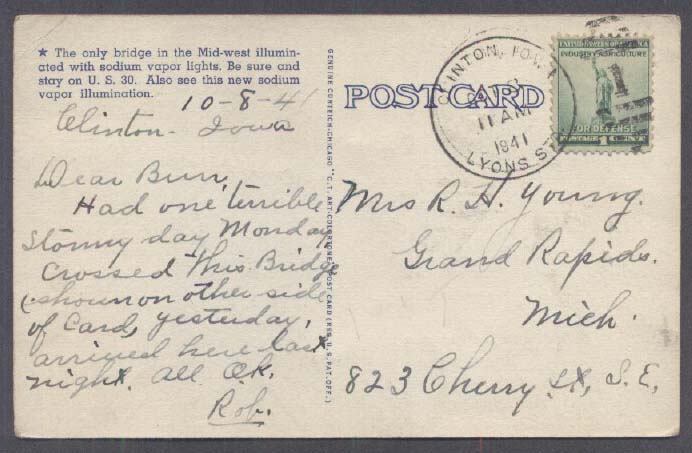 ★ The only bridge in the Mid-west illumin-
ated with sodium vapor lights. Be sure and
stay on U. S. 30. Also see this new sodium
vapor illumination.
10-8-41
Clinton - Iowa
Dear Burr,
Had one terrible
stormy day Monday,
crossed this Bridge
(shown on other side
of Card, yesterday,
arrived here last
night. All O.K.
Rob.
GENUINE CURTEICH-CHICAGO "C. T. ART-COLORTONE" POST CARD (REG. U. S. PAT. OFF.)
POST CARD
CLINTON, IOWA
OCT 8
11 AM
1941
LYONS STA.
UNITED STATES OF AMERICA
INDUSTRY AGRICULTURE
FOR DEFENSE
1
Mrs R. H. Young.
Grand Rapids.
Mich.
823 Cherry St, S.E,